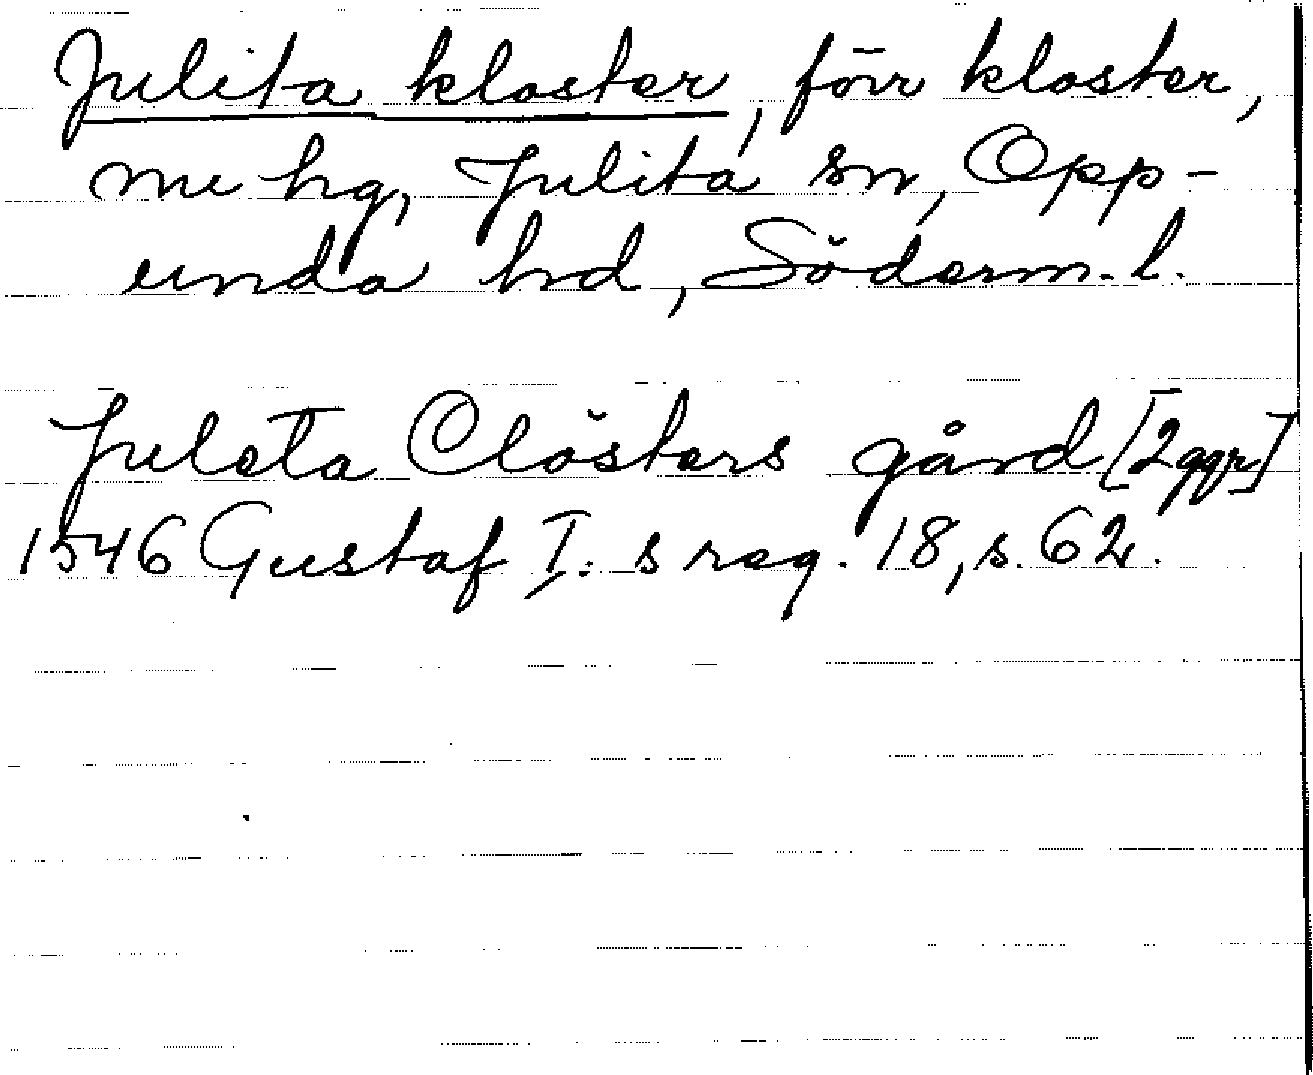 Julita kloster, förr kloster,
nu hg, Julita sn, Opp-
unda hd, Söderm. l.
Juleta Clösters gård [2 ggr]
1546 Gustaf I:s reg. 18, s. 62.